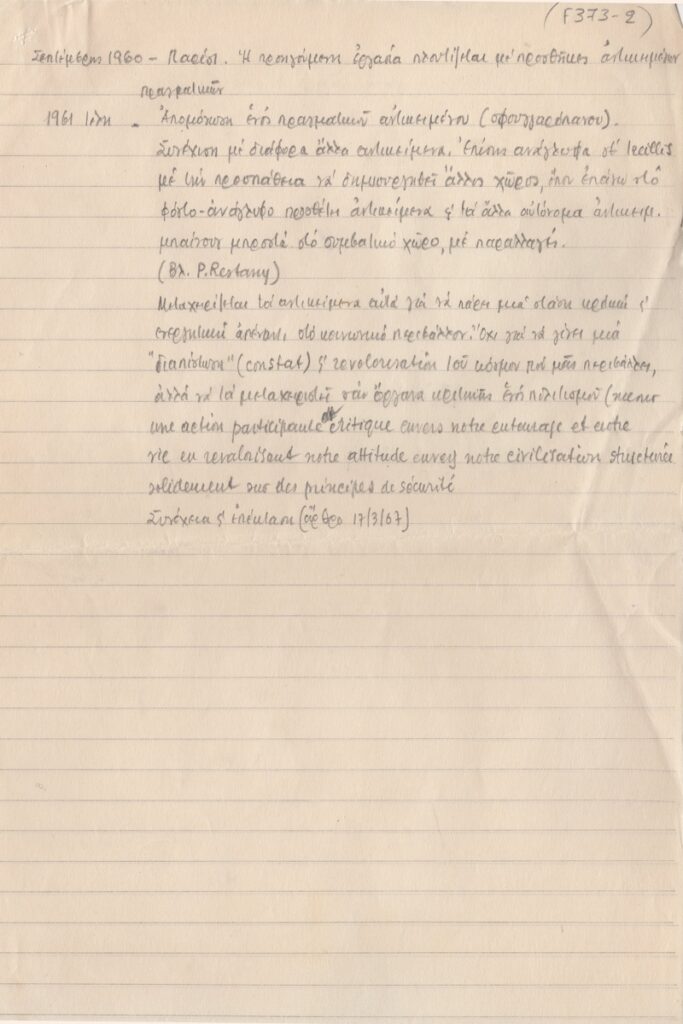 (F373-2)
Σεπτέμβρης 1960 - Παρίσι. Ἡ προηγούμενη ἐργασία πλουτίζεται μέ προσθῆκες ἀντικειμένων
πραγματικῶν
1961 - Ἀπομόνωση ἑνός πραγματικοῦ ἀντικειμένου (σφουγγαρόπανου).
Συνέχιση μέ διάφορα ἄλλα ἀντικείμενα. Ἐπίσης ἀνάγλυφα σέ
μέ τήν προσπάθεια νά δημιουργηθεῖ ἄλλος χῶρος, ὅπου ἐπάνω στό
φότο-ἀνάγλυφο προσθέτει ἀντικείμενα ς τά ἄλλα αὐτόνομα ἀντικειμ.
μπαίνουν μπροστά στό συμβατικό χῶρο, μέ παραλλαγές.
(Βλ. P. Restany)
Μεταχειρίζεται τά ἀντικείμενα αὐτά γιά νά πάρει μιά στάση κριτική ς
ἐνεργητική ἀπέναντι στό κοινωνικό περιβάλλον. Ὄχι γιά νά γίνει μιά
"διαπίστωση" (constat) ς revalorisation τοῦ κόσμου πού μᾶς περιβάλλει,
ἀλλά νά τά μεταχειρισθεῖ σάν ὄργανα κριτικῆς ἑνός πολιτισμοῦ (
une action participante et critique envers notre entourage et notre
vie en revalorisant notre attitude envers notre civilisation structurée
solidement sur des principes de sécurité
Συνέχεια ς ἐπέκταση (ἄρθρο 17/3/67)